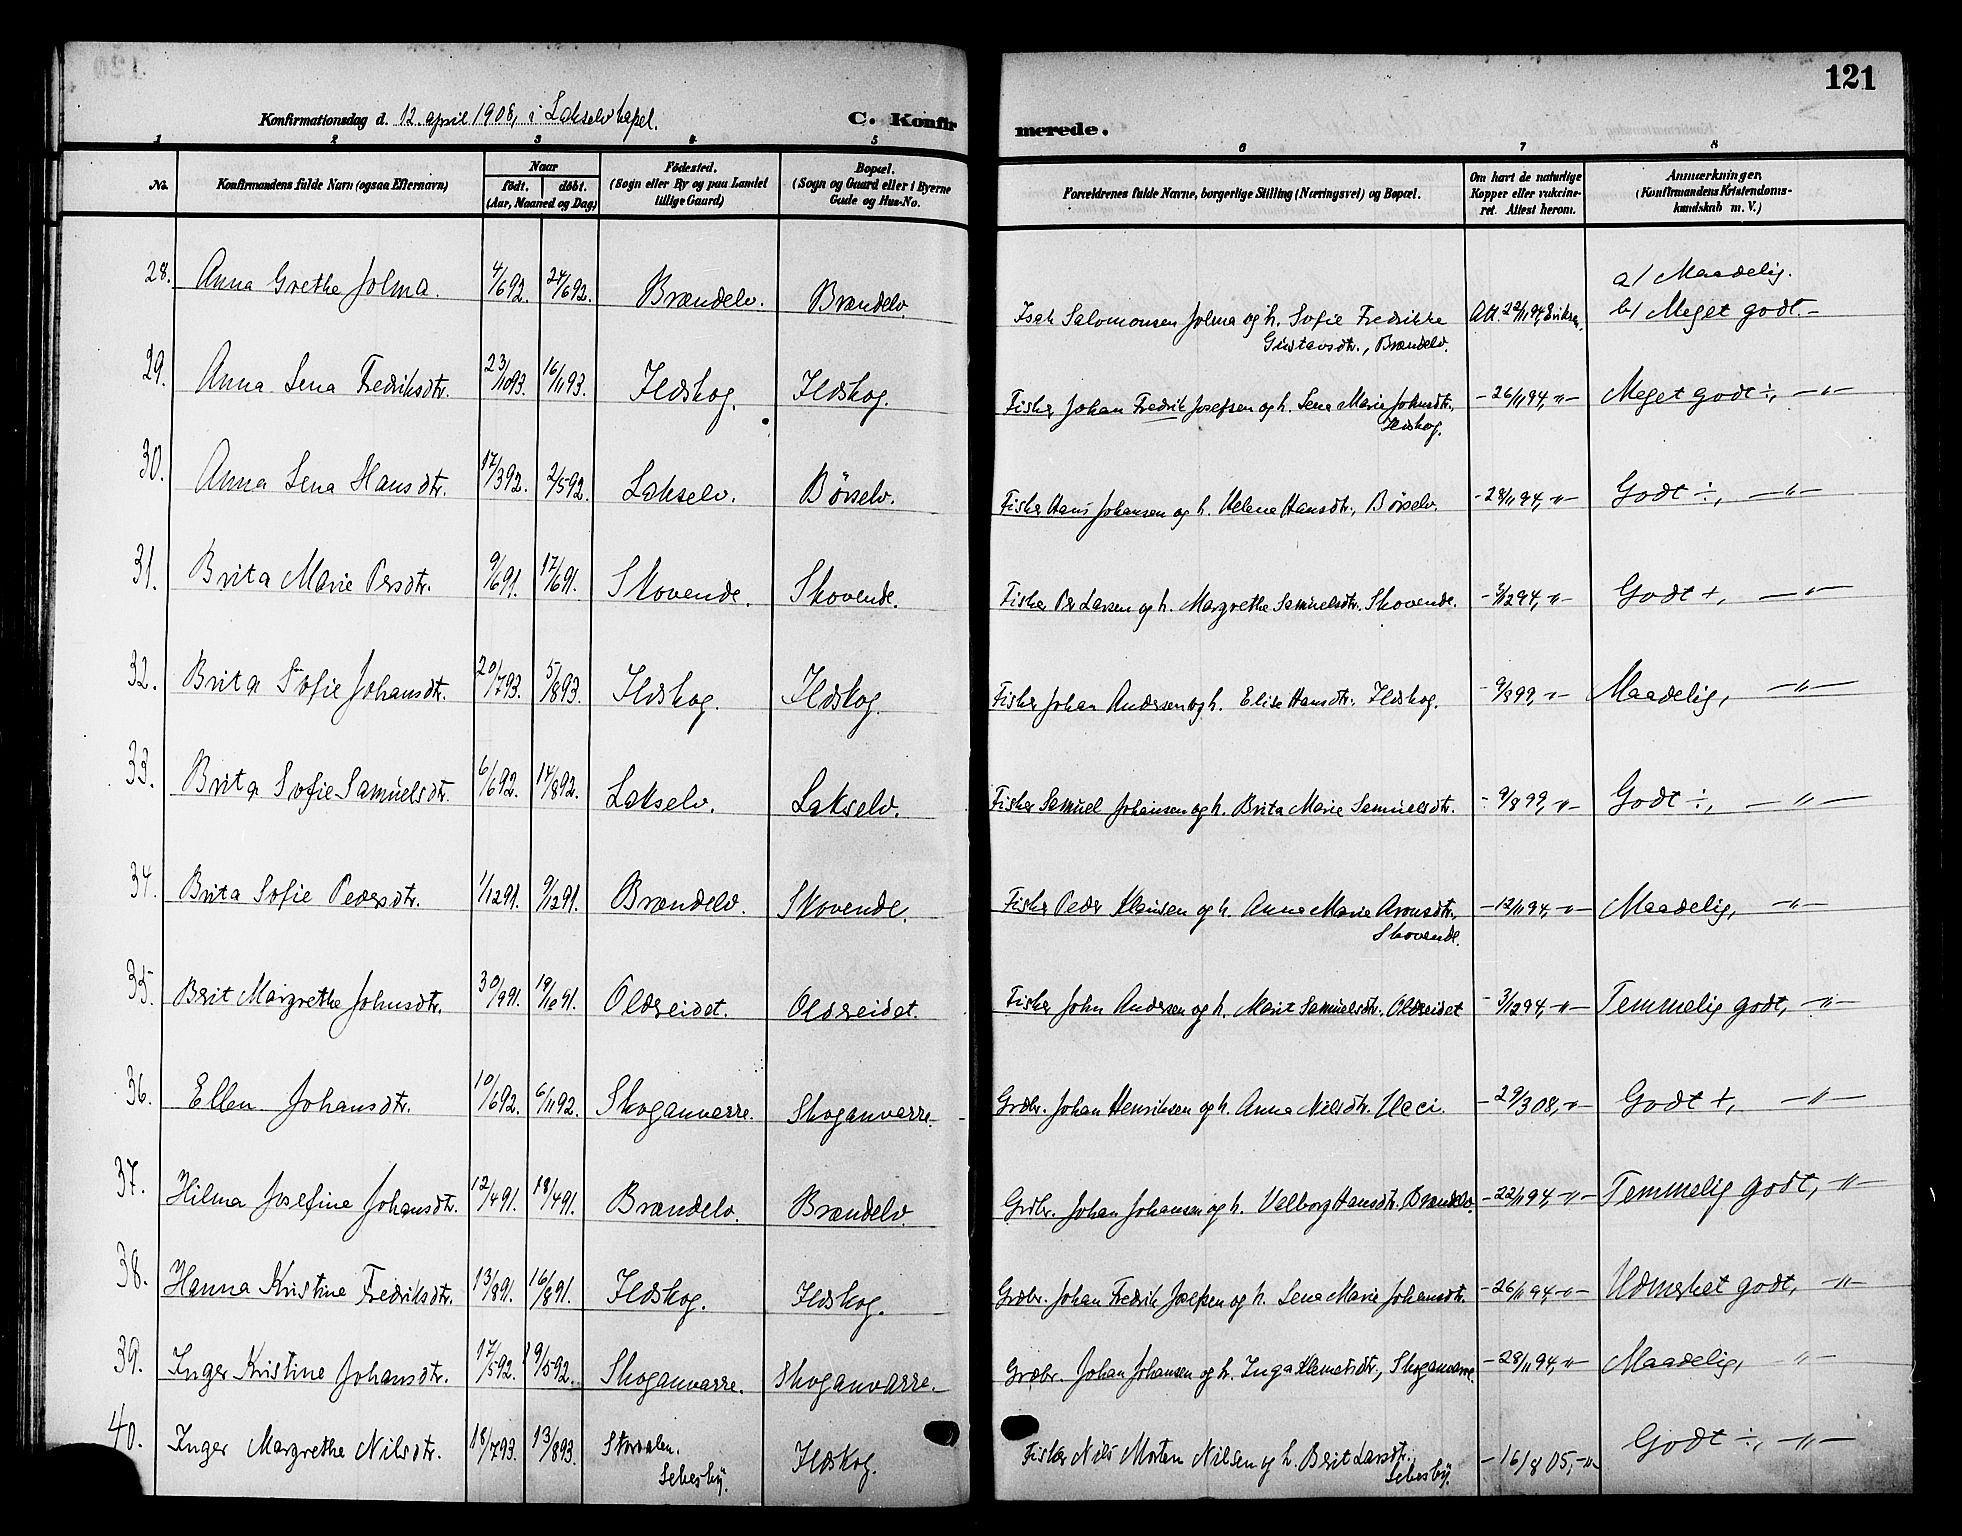 121
Konfirmationsdag d. 12. april 1908, i Lakselv kapel.
C. Konfirmerede.
1 2 3 4 5 6 7 8
No. Konfirmandens fulde Navn (ogsaa Efternavn)
Naar født. døbt. (Aar, Maaned og Dag)
Fødested. (Sogn eller By og paa Landet tillige Gaard)
Bopæl. (Sogn og Gaard eller i Byerne Gade og Hus-No.
Forældrenes fulde Navne, borgerlige Stilling (Næringsvei) og Bopæl.
Om havt de naturlige Kopper eller vakcineret. Attest herom.
Anmærkninger. (Konfirmandens Kristendomskundskab m. V.)
28. Anna Grethe Jolma. 4/6 92. 24/6 92. Brændelv. Brændelv. Isak Salomonsen Jolma og h. Sofie Fredrikke Att. 22/11 94, Eriksen. a/ Maadelig.
Gustavsdtr., Brændelv. b/ Meget godt –
29. Anna Lena Fredriksdtr. 23/10 93. 16/11 93. Ildskog. Ildskog. Fisker Johan Fredrik Josefsen og h. Lena Marie Johnsdtr., – 26/11 94, –"– Meget godt ÷, –"–
Ildskog.
30. Anna Lena Hansdtr. 17/3 92. 2/5 92. Lakselv. Børselv. Fisker Hans Johansen og h. Helene Hansdtr., Børselv. – 28/11 94, –"– Godt ÷, –"–
31. Brita Marie Persdtr. 9/6 91. 17/6 91. Skovende. Skovende. Fisker Per Larsen og h. Margrethe Samuelsdtr. Skovende. – 3/12 94, –"– Godt +, –"–
32. Brita Sofie Johansdtr. 20/7 93. 5/8 93. Ildskog. Ildskog. Fisker Johan Andersen og h. Elise Hansdtr. Ildskog. – 9/8 99, –"– Maadelig, –"–
33. Brita Sofie Samuelsdtr. 6/6 92. 14/8 92. Lakselv. Lakselv. Fisker Samuel Johansen og h. Brita Marie Samuelsdtr. – 9/8 99, –"– Godt ÷, –"–
34. Brita Sofie Pedersdtr. 1/12 91. 9/12 91. Brændelv. Skovende. Fisker Peder Klausen og h. Anna Marie Aronsdtr., – 12/11 94, –"– Maadelig, –"–
Skovende.
35. Brit Margrethe Johnsdtr. 30/9 91. 19/10 91. Oldereidet. Oldereidet. Fisker John Andersen og h. Marit Samuelsdtr. Oldereidet – 3/12 94, –"– Temmelig godt, –"–
36. Ellen Johansdtr. 10/6 92. 6/11 92. Skoganvarre. Skoganvarre. Grdbr. Johan Henriksen og h. Anna Nilsdtr. – 29/3 08, –"– Godt +, –"–
37. Hilma Josefine Johansdtr. 12/4 91. 18/4 91. Brændelv. Brændelv Grdbr. Johan Johansen og h. Valborg Hansdtr. Brændelv. – 22/11 94, –"– Temmelig godt, –"–
38. Hanna Kristine Fredriksdtr. 13/8 91. 16/8 91. Ildskog. Ildskog. Grdbr. Johan Fredrik Josefsen og h. Lena Marie Johansdtr. – 26/11 94 –"– Udmerket godt, –"–
39. Inger Kristine Johansdtr. 17/5 92. 19/5 92. Skoganvarre. Skoganvarre. Grdbr. Johan Johansen og h. Inga Klemetsdtr., Skoganvarre. – 28/11 94, –"– Maadelig, –"–
40. Inger Margrethe Nilsdtr. 18/7 93. 13/8 93. Ildskog. Fisker Nils Morten Nilsen og h. Brit Larsdtr. – 16/8 05, –"– Godt ÷, –"–
Lebesby. Lebesby.